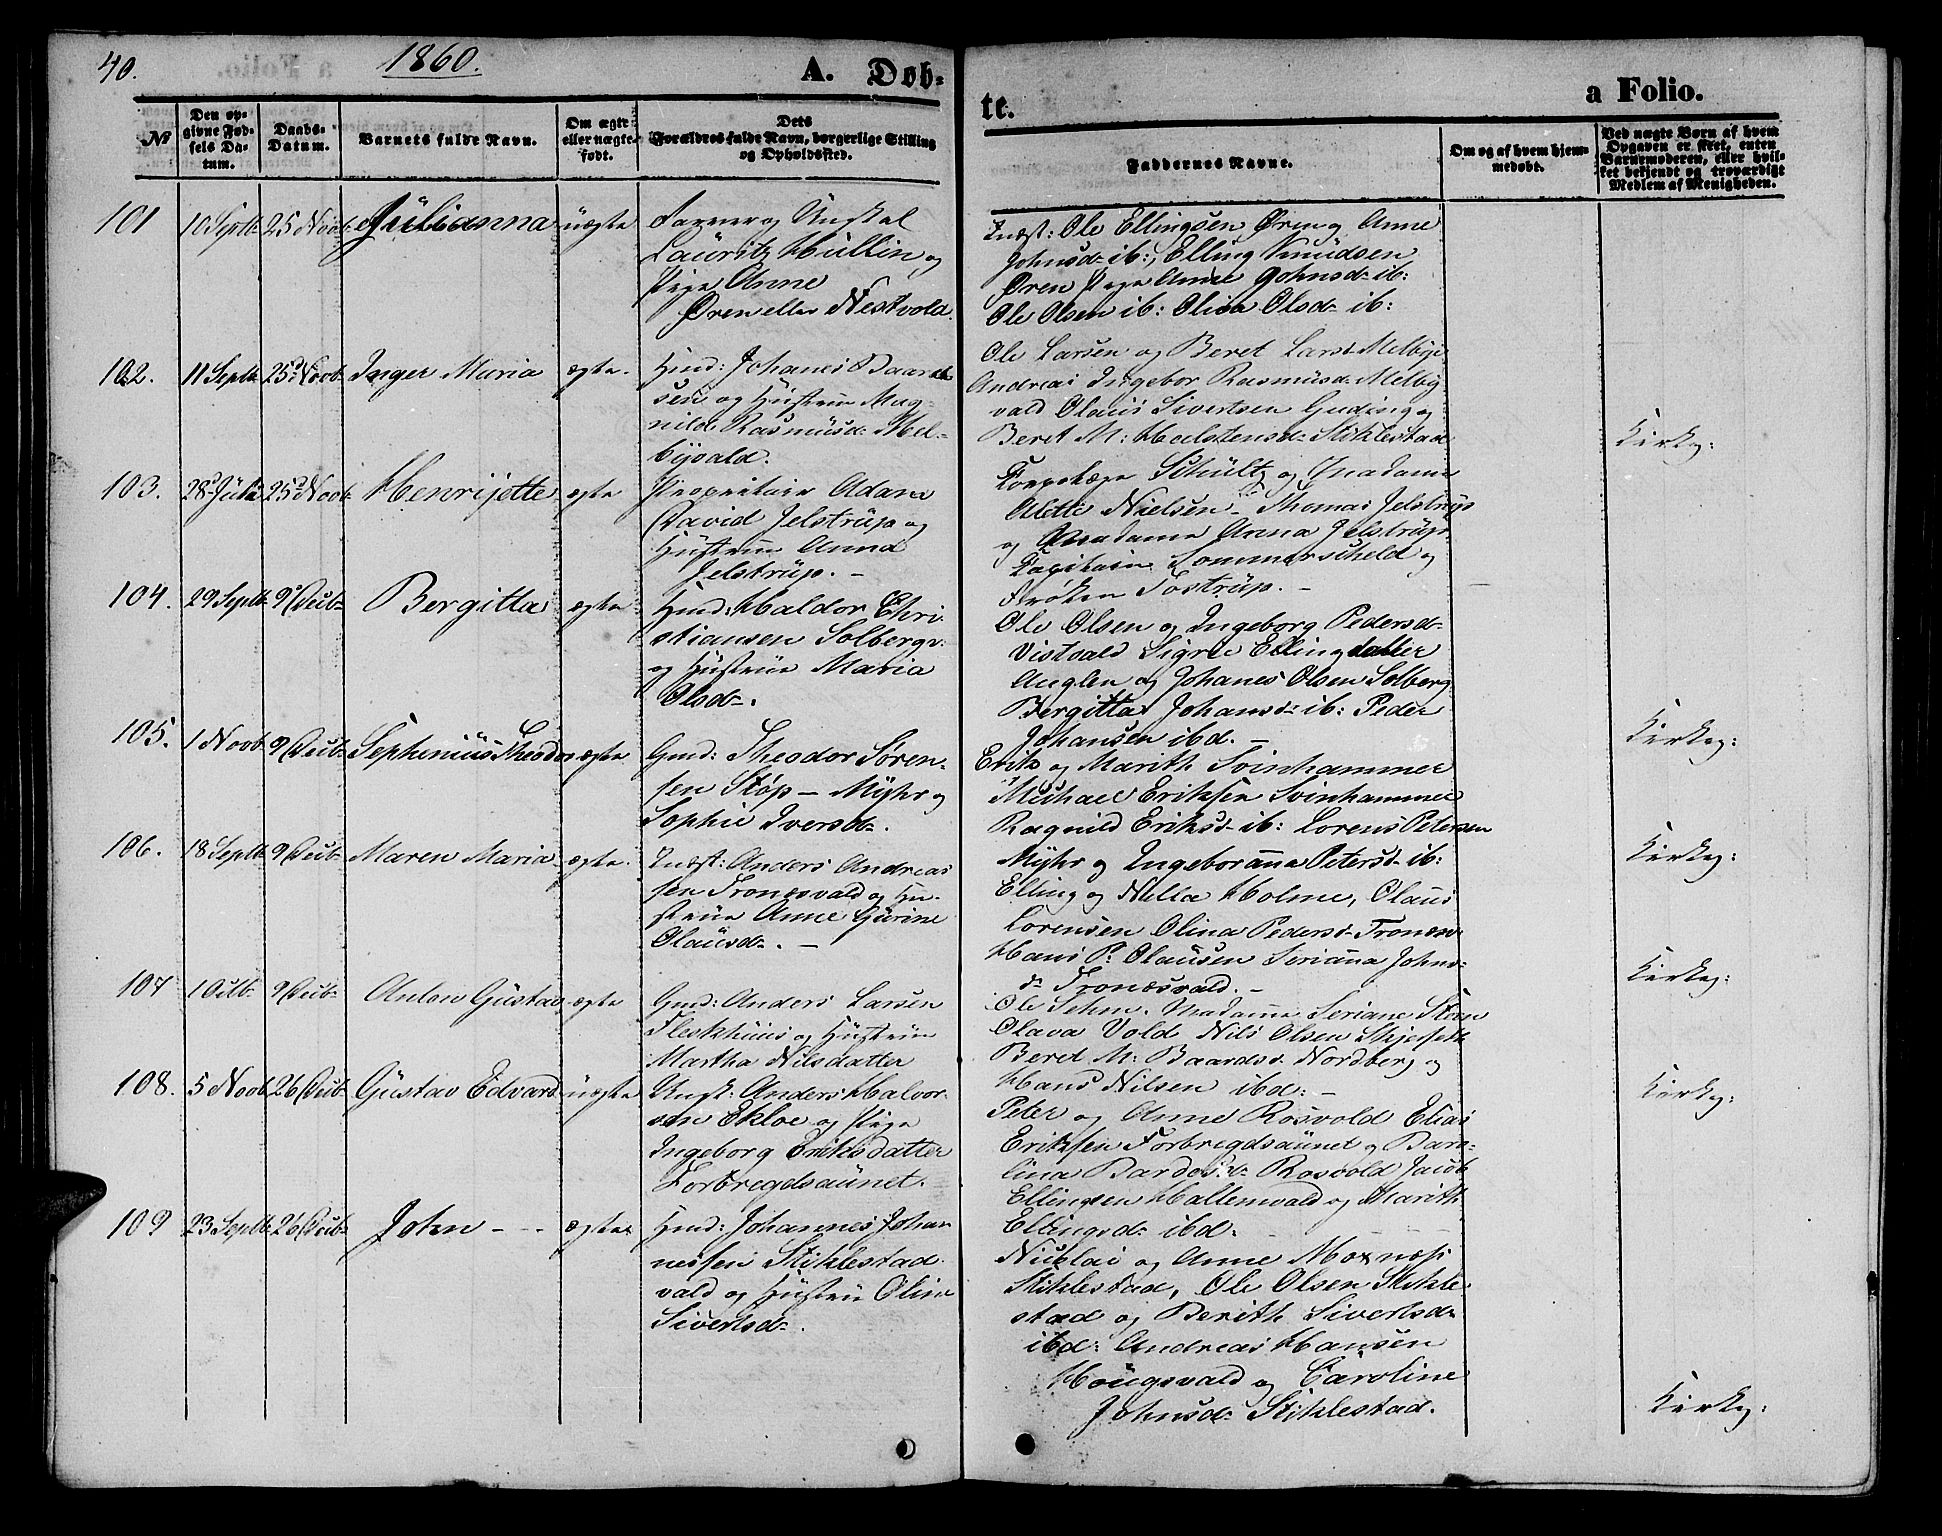 40.
1860.
A. Døb-
te.
a Folio.
№
Den op-
givne Fød-
sels Da-
tum.
Daabs-
Datum.
Barnets fulde Navn.
Om ægte
eller uægte
født.
Dets
Forældres fulde Navn, borgerlige Stilling
og Opholdssted.
Faddernes Navne.
Om og af hvem hjem-
medøbt.
Ved uægte Børn af hvem
Opgaven er skeet, enten
Barnemoderen, eller hvil-
ket bekjendt og troværdigt
Medlem af Menigheden.
101 10 Septb 25 Novb Julianna uægte
og Ungkal
Lauritz Hullin og
Pige Anne
Øren eller Nestvold.
Indst: Ole Ellingsen Øren og Anne
Johnsd- ib:, Elling Knudsen
Øren Pige Anne Johnsd- ib:
Ole Olsen ib: Olina Olsd- ib:
102. 11 Septb 25 Novb Inger Maria ægte.
Hmd: Johanes Baard
sen og Hustrue Mag-
nild Rasmusd- Mel-
byvald.
Ole Larsen og Beret Larsd Melbye
Andreas Ingebor Rasmusd- Melby
vald Olaus Sivertsen Guding og
Beret M: Halstensd- Stiklestad
Kirkeg:
103. 28 Juli 25 Novb Henrijette ægte
Proprietair Adam
David Jelstrup og
Hustrue Anna
Jelstrup. -
Schultz og Madame
Alette Nielsen - Thomas Jelstrup
og Madame Anna Jelstrup
Kapitain Sommerscheld og
Frøken Tostrup. -
104. 29 Septb 9 Decb Bergitta ægte
Hmd: Haldor Chri
stiansen Solbergv:
og Hustrue Maria
Olsd-.
Ole Olsen og Ingeborg Pedersd-
Vistvald Sigrie Ellingdatter
Auglen og Johanes Olsen Solberg
Bergitta Johansd- ib: Peder
Johansen ibd. -
Kirkeg:
105. 1 Novb 9 Decb Sephenius Theodor ægte
Gmd: Theodor Søren-
sen Støp - Myhr og
Sophie Iversd-.
Erik og Marith Svinhammer
Michael Eriksen Svinhammer
Ragnild Eriksd- ib: Lorens Petersen
Myhr og Ingeboranna Petersd- ib:
Kirkeg:
106. 18 Septb 9 Decb Maren Maria ægte.
Indst: Anders Andreas
sen Tronesvald og Hu-
strue Anne Gurine
Olausd-. -
Elling og Nilla Holme, Olaus
Lorensen Olina Pedersd- Tronesv:
Hans P. Olausen Serianna Johns-
d- Tronesvald. -
Kirkeg:
107 1 Octb 9 Decb Anton Gustav ægte
Gmd: Anders Larsen
Fleskhuus og Hustrue
Martha Nilsdatter
Ole Sehm. Madame Seriane Steen
Olava Vold Nils Olsen Skjesett
Beret M: Baardsd- Nordberg og
Hans Nilsen ibd: -
Kirkeg:
108. 5 Novb 26 Decb Gustav Edvard uægte
Ungk: Anders Halvor-
sen Ekloe og Pige
Ingeborg Eriksdatter
Forbregdsaunet.
Peter og Anne Rosvold Elias
Eriksen Forbregdsaunet og Bare-
lina Bardosd- Rosvold Jacob
Ellingsen Hallemvald og Marith
Ellingsd- ibd.
109 23 Septb 26 Decb John - - - ægte
Hmd: Johannes Johan
nessen Stiklestad
vald og Hustrue Oline
Sivertsd-.
Nicolai og Anne Moxness
Stiklestad, Ole Olsen Stikle
stad og Berith Sivertsd-
ibd: Andreas Hansen
Hougsvald og Caroline
Johnsd- Stiklestad.
Kirkeg: